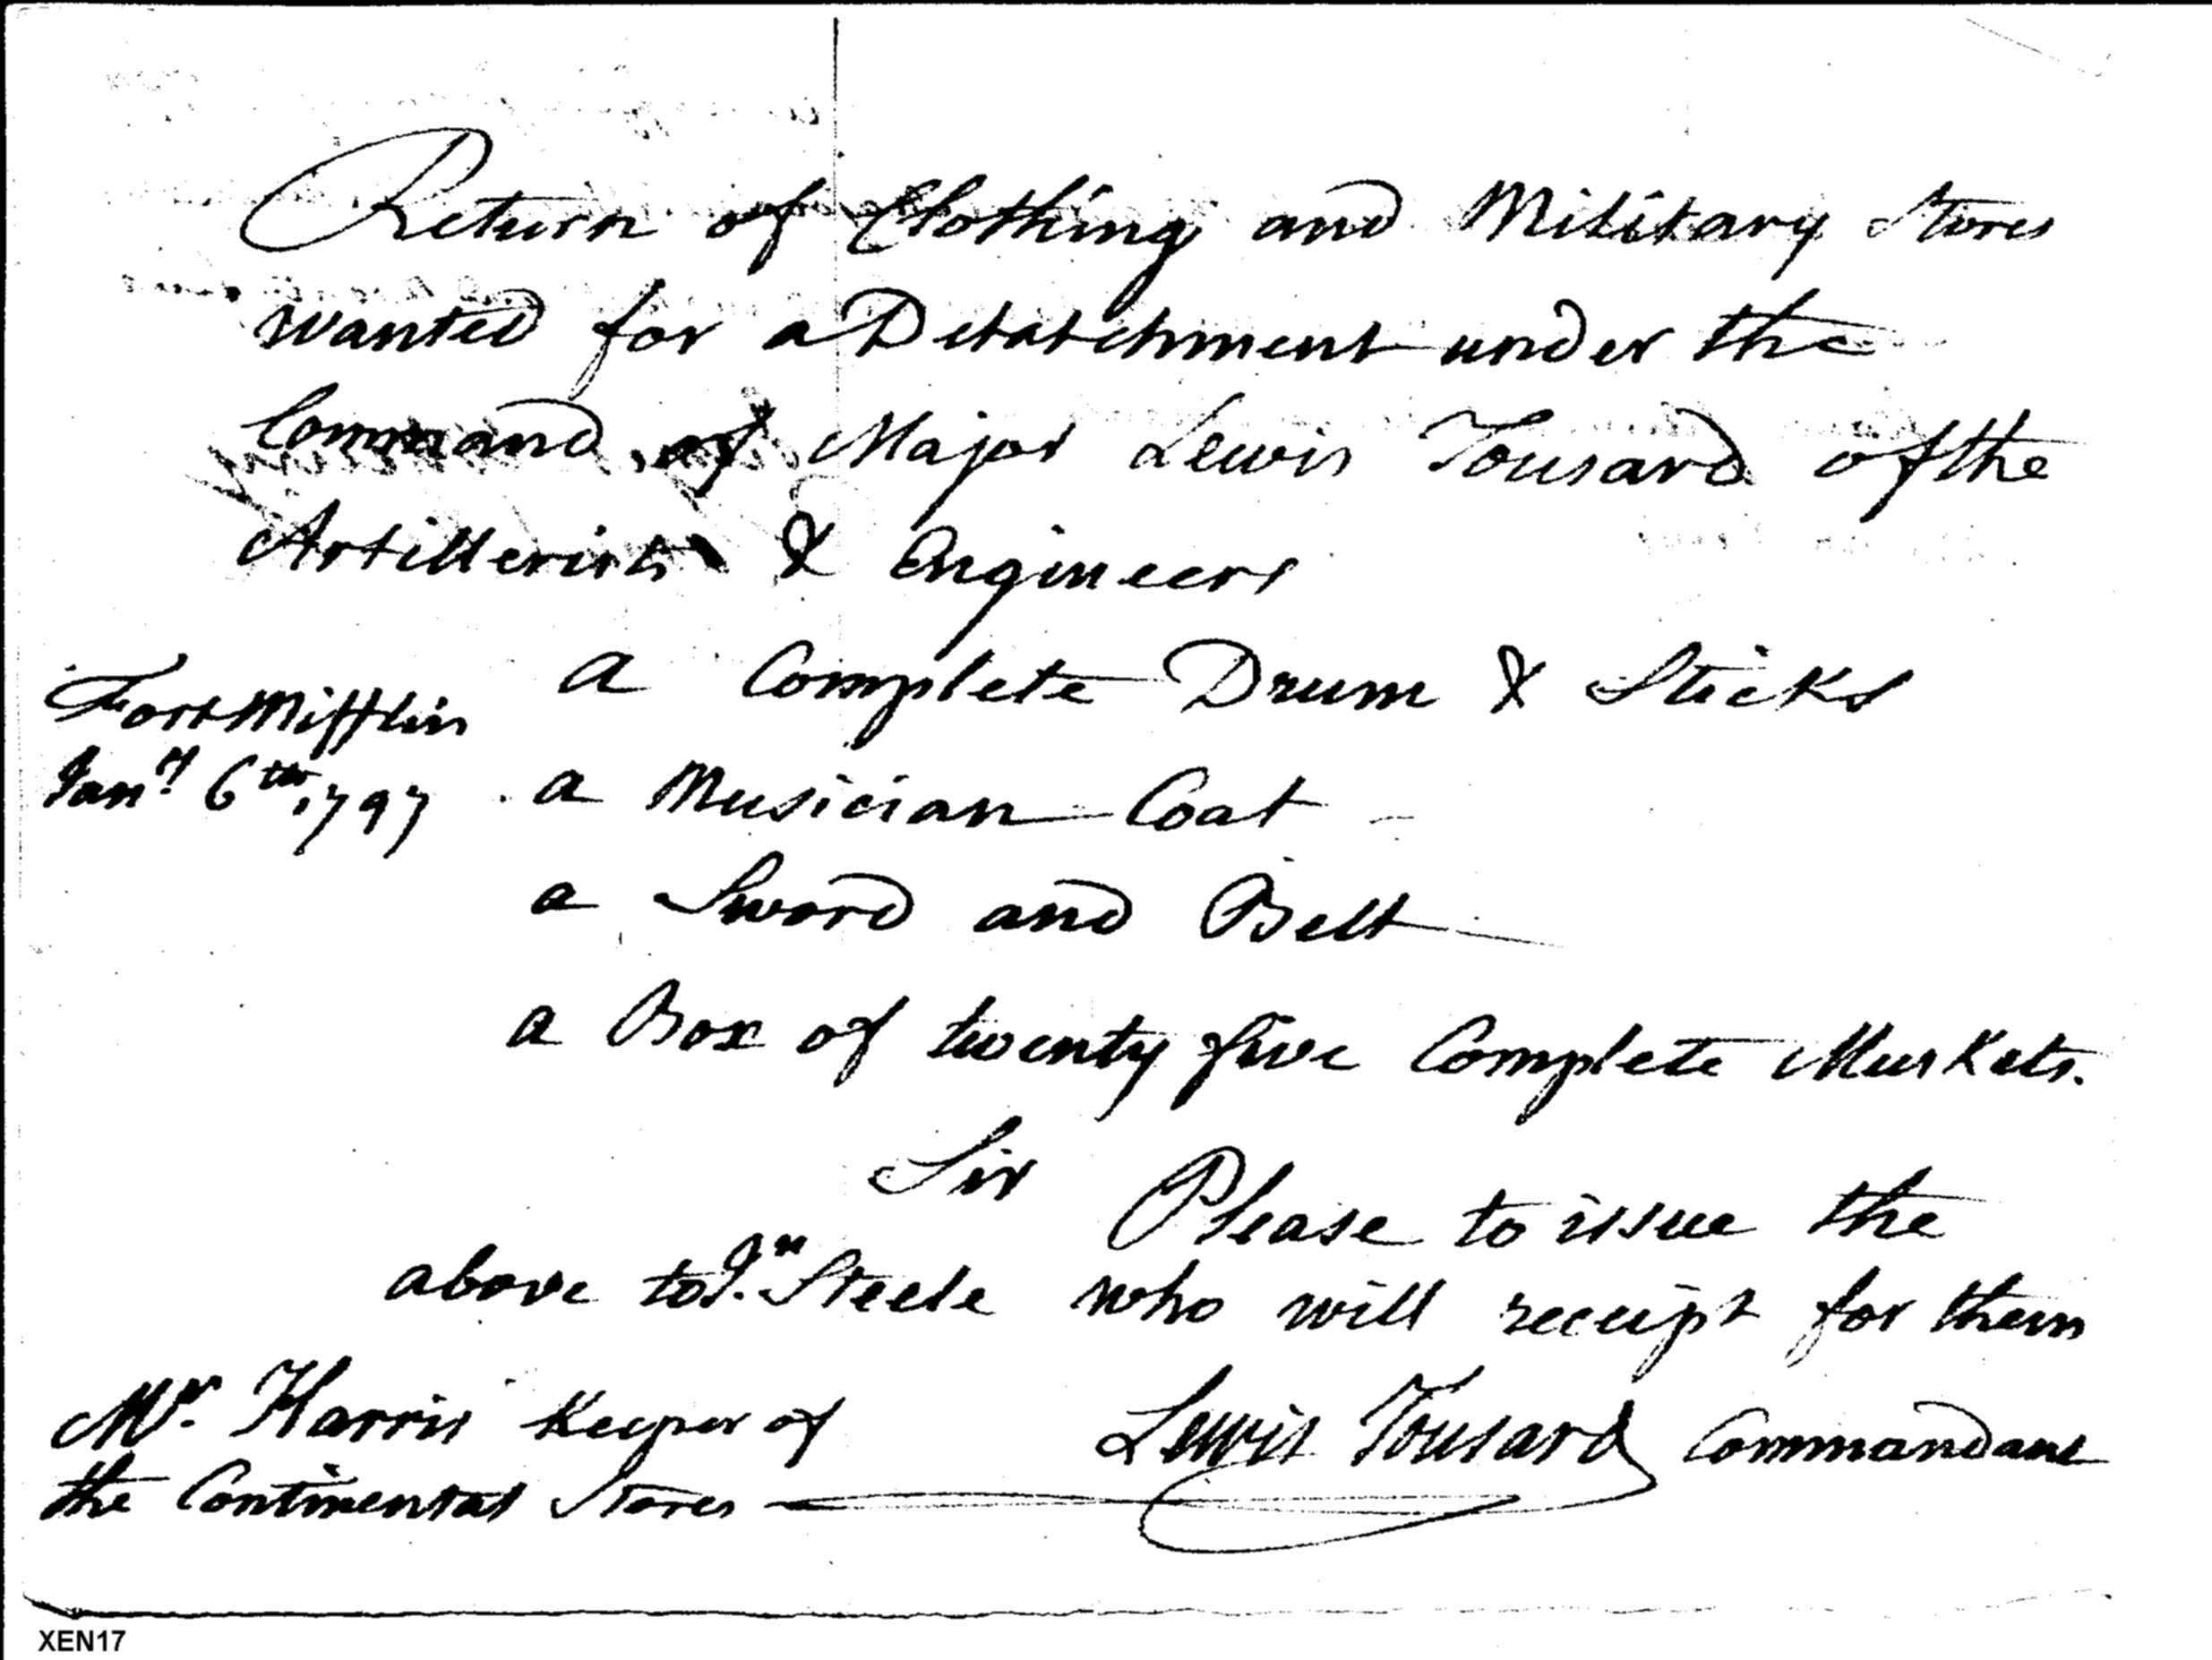 Return of Clothing and Military Stores
wanted for a Detatchment under the
Command of Major Lewis Tousard of the
Artillerists & Engineers
Fort Mifflin
Jany 6th 1797
a Complete Drum & Sticks
a Musician Coat
a Sword and Belt
a Box of twenty five Complete Muskets.
Sir Please to issue the
above to Jn. Steele who will receipt for them
Mr. Harris Keeper of
the Continental Stores
Lewis Tousard Commandant
XEN17